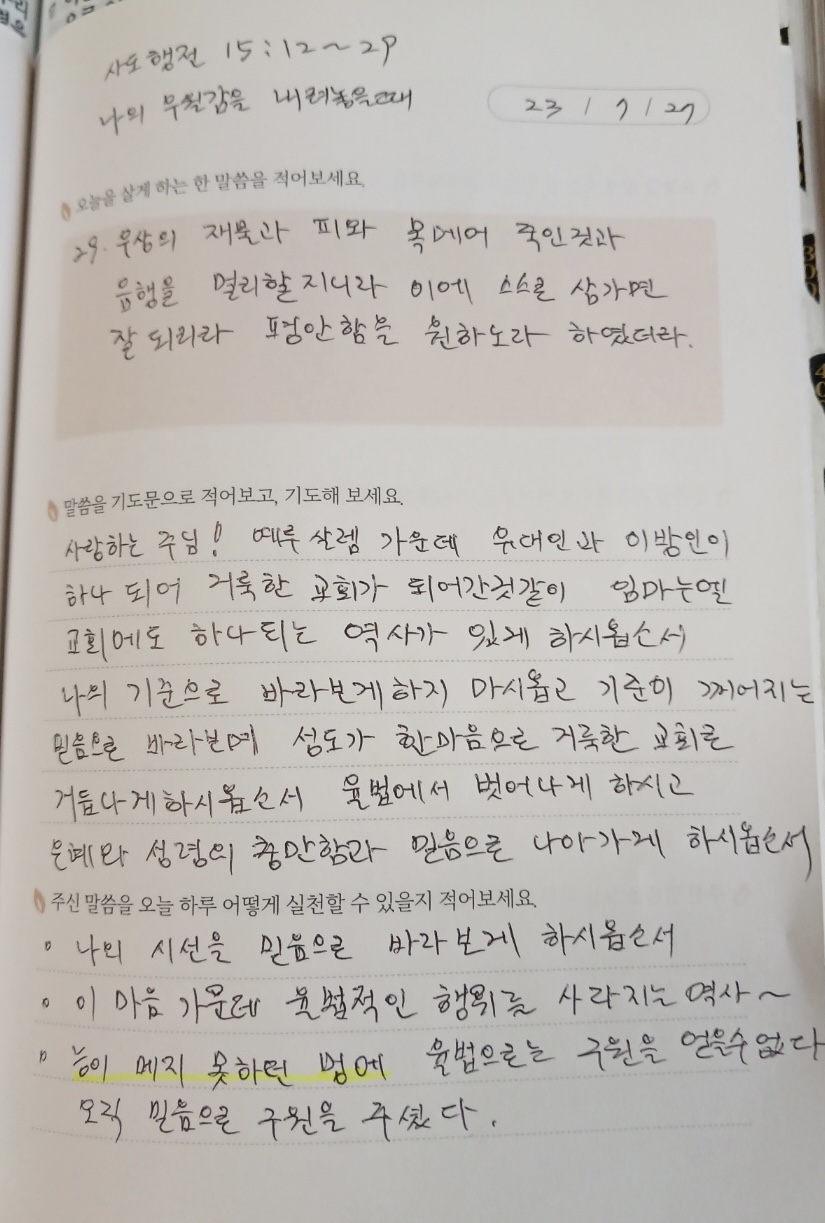 사도행전 15:12~29
나의 무월감을 내려놓을때
23 / 7 / 27
오늘을 살게 하는 한 말씀을 적어보세요.
29. 우상의 재물과 피와 목메어 죽인것과
음행을 멀리할지니라 이에 스스로 삼가면
잘 되리라 평안함을 원하노라 하였더라.
말씀을 기도문으로 적어보고, 기도해 보세요.
사랑하는 주님! 예루살렘 가운데 유대인과 이방인이
하나 되어 거룩한 교회가 되어간것같이 임마누엘
교회에도 하나되는 역사가 있게 하시옵소서
나의 기준으로 바라보게하지 마시옵고 기준이 깨어지는
믿음으로 바라보며 성도가 한마음으로 거룩한 교회로
거듭나게하시옵소서 율법에서 벗어나게 하시고
은혜와 성령의 충만함과 믿음으로 나아가게 하시옵소서
주신 말씀을 오늘 하루 어떻게 실천할 수 있을지 적어보세요.
• 나의 시선을 믿음으로 바라보게 하시옵소서
• 이 마음 가운데 율법적인 행위를 사라지는 역사~
• 능이 메지 못하던 멍에 율법으로는 구원을 얻을수없다
오직 믿음으로 구원을 주셨다.